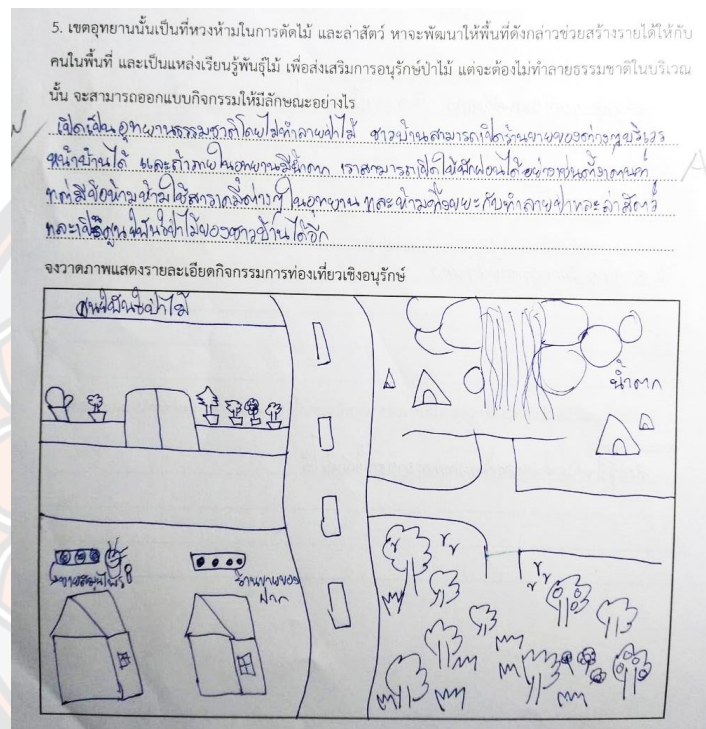 5. เขตอุทยานนั้นเป็นที่หวงห้ามในการตัดไม้ และล่าสัตว์ หาจะพัฒนาให้พื้นที่ดังกล่าวช่วยสร้างรายได้ให้กับ
คนในพื้นที่ และเป็นแหล่งเรียนรู้พันธุ์ไม้ เพื่อส่งเสริมการอนุรักษ์ป่าไม้ แต่จะต้องไม่ทำลายธรรมชาติในบริเวณ
นั้น จะสามารถออกแบบกิจกรรมให้มีลักษณะอย่างไร
เปิดเป็นอุทยานธรรมชาติโดยไม่ทำลายป่าไม้ ชาวบ้านสามารถเปิดร้านขายของต่างๆบริเวร
หน้าบ้านได้ และถ้าภายในอุทยานมีน้ำตก เราสามารถเปิดให้พักผ่อนได้อย่างเช่นตั้งแคมท์
แต่มีข้อห้ามห้ามใช้สารเคมีต่างๆในอุทยาน และห้ามทิ้งขยะกับทำลายป่าและล่าสัตว์
และเปิดศูนย์พันธุ์ป่าไม้ของชาวบ้านได้อีก
จงวาดภาพแสดงรายละเอียดกิจกรรมการท่องเที่ยวเชิงอนุรักษ์
ป่าไม้
น้ำตก
ร้านขายของ
ฝาก